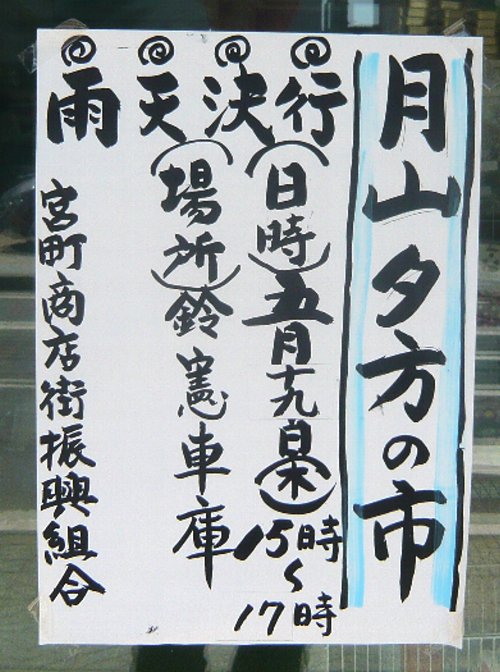 月山夕方の市
雨天決行
(日時)五月十九日(木)
15時~17時
(場所)鈴憲車庫
宮町商店街振興組合